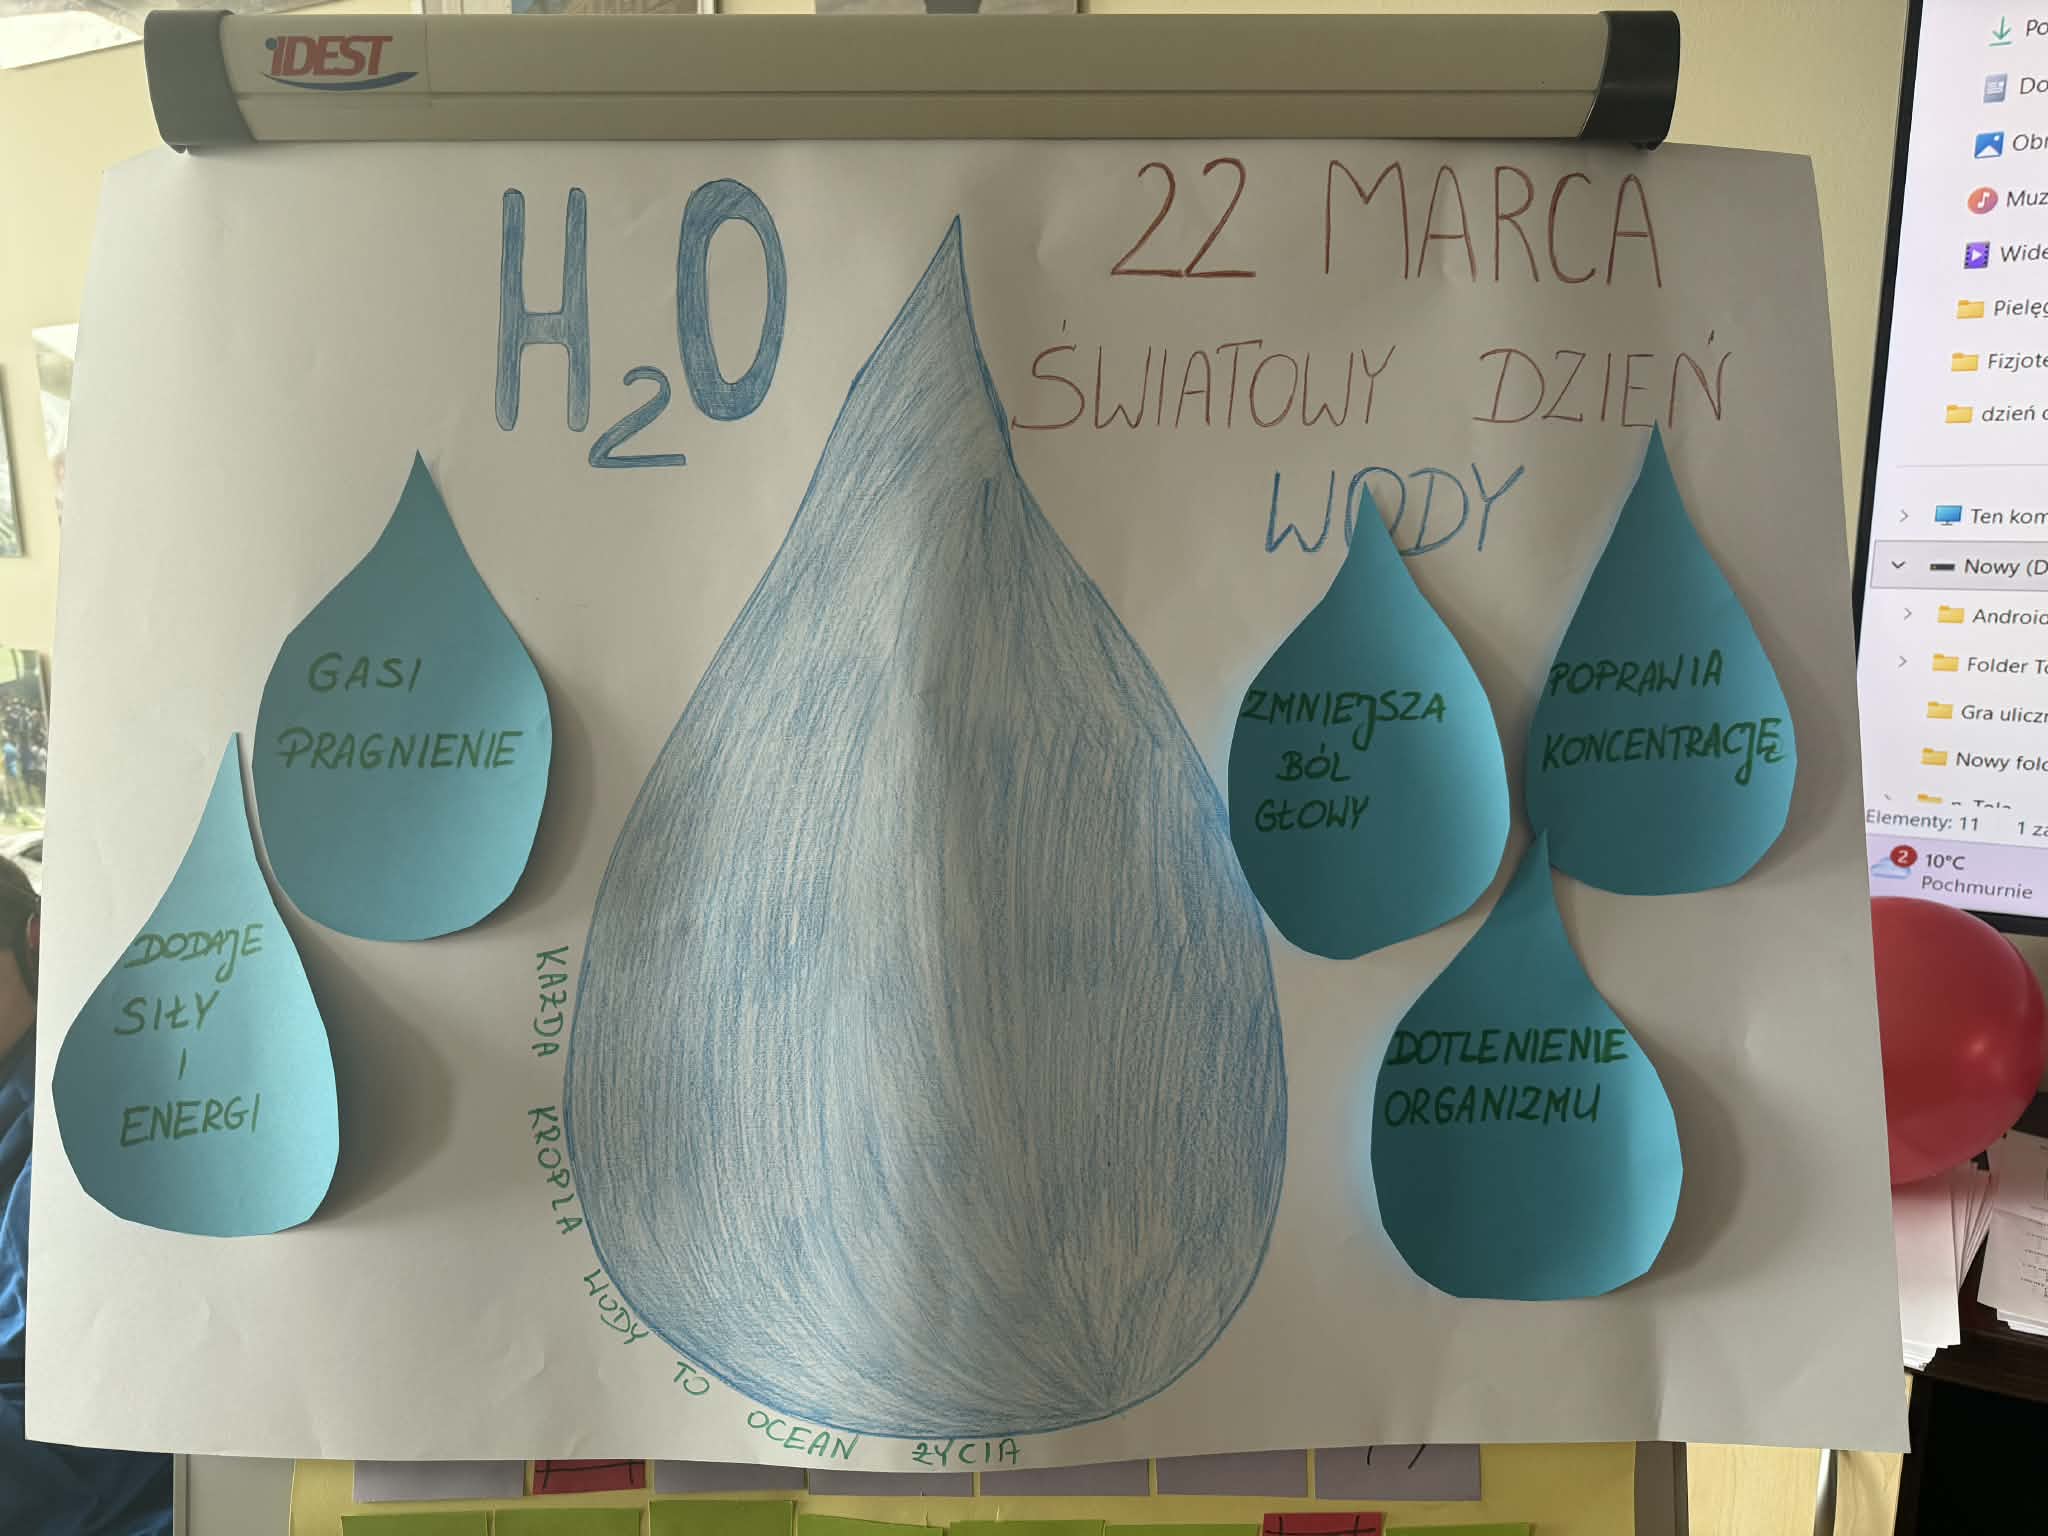 iDEST
H₂O
22 MARCA
ŚWIATOWY DZIEŃ
WODY
GASI
PRAGNIENIE
DODAJE
SIŁY
I
ENERGI
ZMNIEJSZA
BÓL
GŁOWY
POPRAWIA
KONCENTRACJĘ
DOTLENIENIE
ORGANIZMU
KAŻDA KROPLA WODY TO OCEAN ŻYCIA
Po
Do
Obr
Muz
Wide
Pielęg
Fizjote
dzień
Ten kom
Nowy (D
Android
Folder To
Gra ulicz
Nowy fold
Elementy: 11 1 za
2
10°C
Pochmurnie